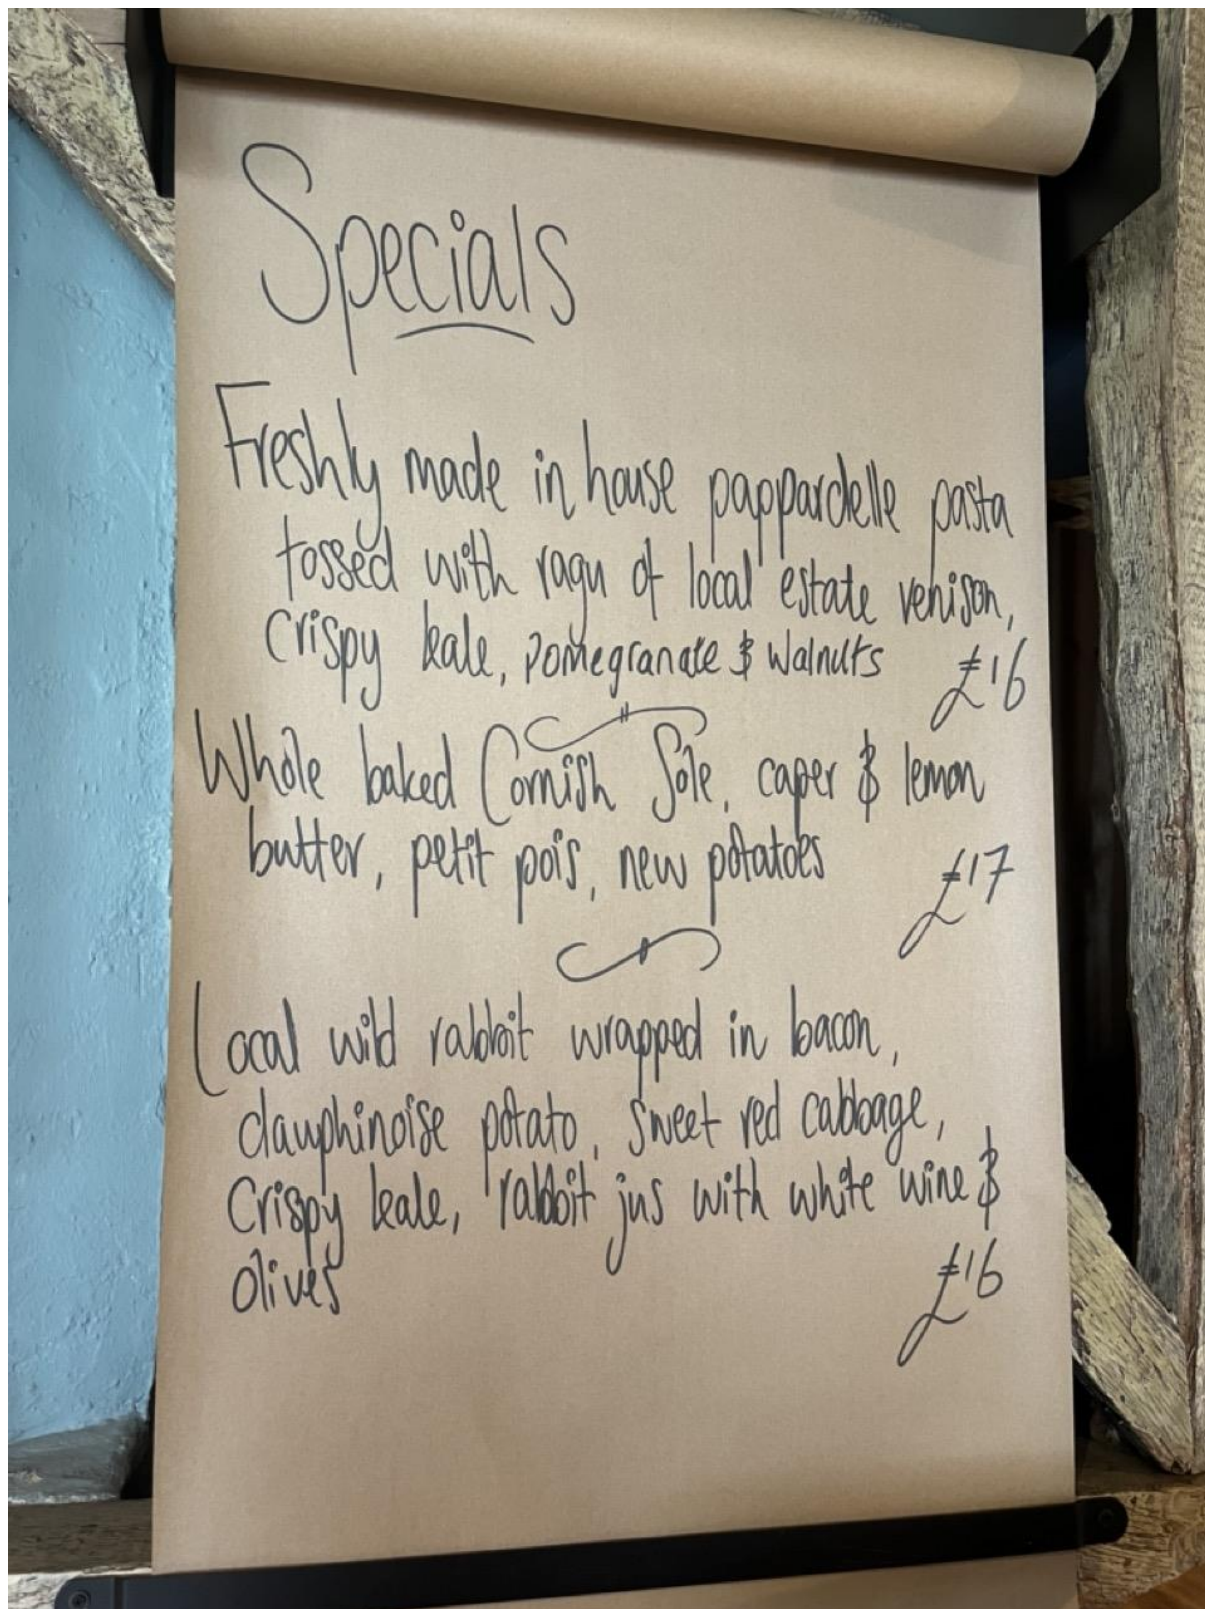 Specials
Freshly made in house pappardelle pasta
tossed with ragu of local estate venison,
Crispy kale, pomegranate & walnuts £16
Whole baked Cornish Sole, caper & lemon
butter, petit pois, new potatoes
£17
Local wild rabbit wrapped in bacon,
dauphinoise potato, sweet red cabbage,
Crispy kale, rabbit jus with white wine &
olives £16